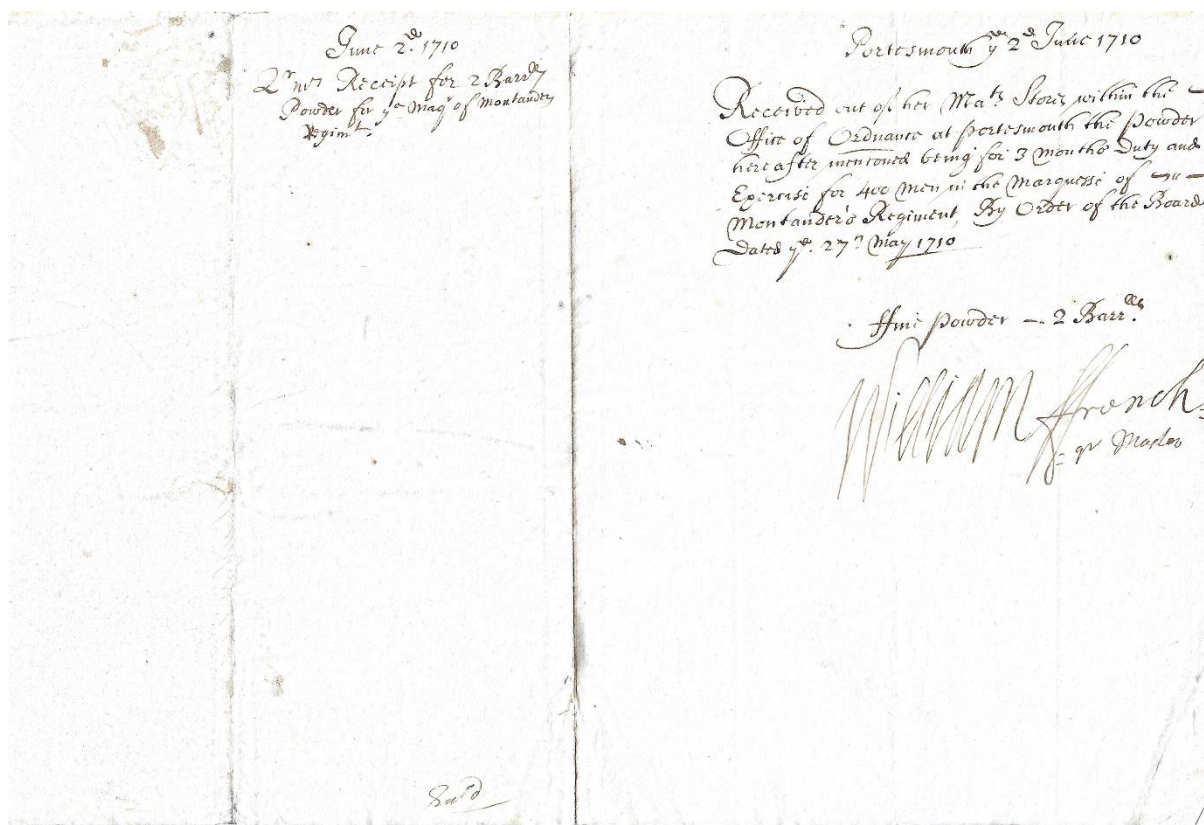 June 2d. 1710
Qr mrs Receipt for 2 Barrlls
Powder for ye Marqs of Montanders
Regimt.
Ent'd
Portesmouth ye 2d June 1710
Received out of her Mats Stores within the
Office of Ordnance at Portesmouth the Powder
hereafter mentioned being for 3 months Duty and
Exercise for 400 Men in the Marquesse of
Montander's Regiment, By Order of the Board
Dated ye. 27th May 1710
ffine Powder — 2 Barrlls.
William ffrench
qr Master